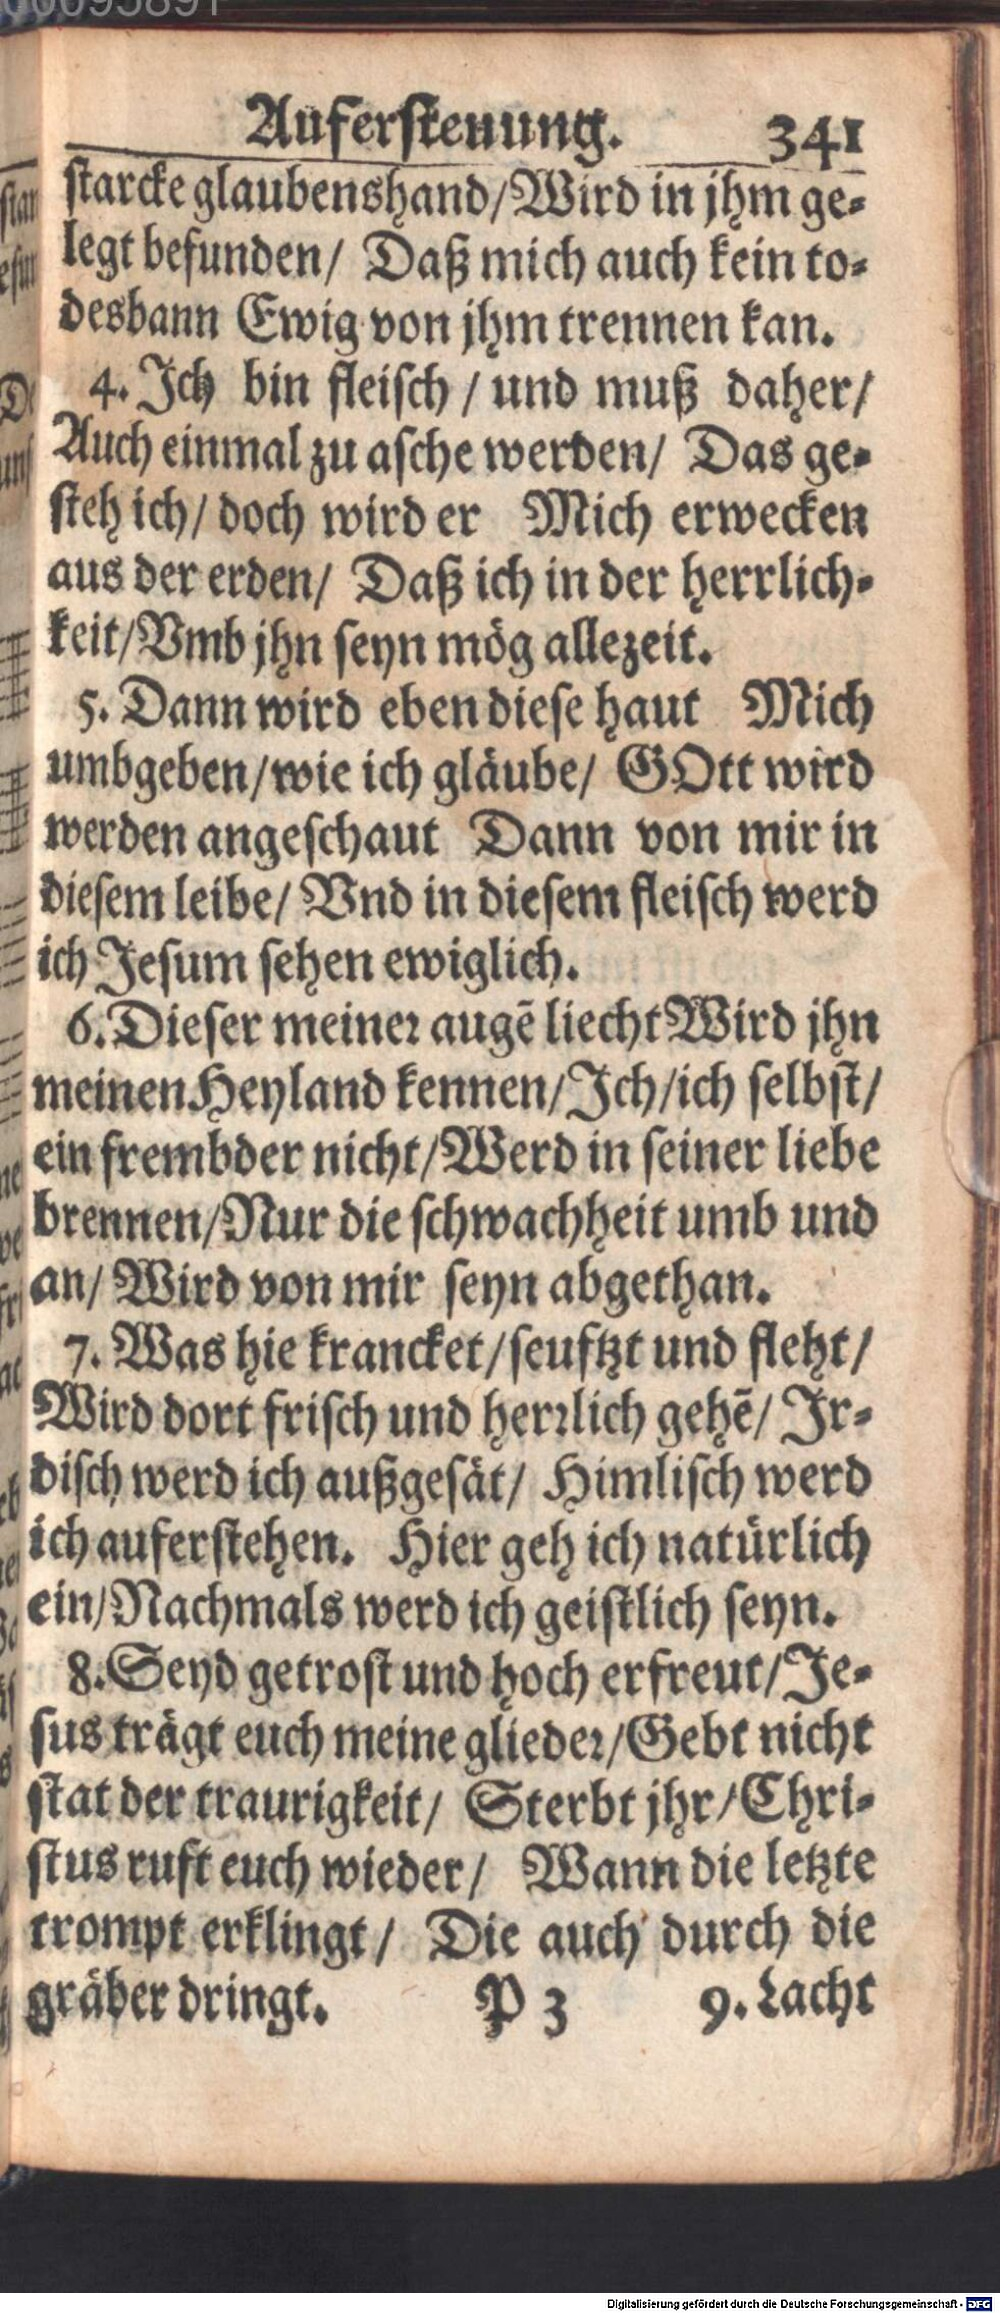 Auferstehung. 341
starcke glaubenshand/Wird in jhm ge-
legt befunden/ Daß mich auch kein to-
desbann Ewig von jhm trennen kan.
4. Ich bin fleisch / und muß daher/
Auch einmal zu asche werden/ Das ge-
steh ich/ doch wird er Mich erwecken
aus der erden/ Daß ich in der herrlich-
keit/Vmb jhn seyn mög allezeit.
5. Dann wird eben diese haut Mich
umbgeben/wie ich gläube/ GOtt wird
werden angeschaut Dann von mir in
diesem leibe/ Vnd in diesem fleisch werd
ich Jesum sehen ewiglich.
6. Dieser meiner augē liecht Wird jhn
meinen Heyland kennen/Ich/ich selbst/
ein frembder nicht/Werd in seiner liebe
brennen/Nur die schwachheit umb und
an/ Wird von mir seyn abgethan.
7. Was hie krancket/seuftzt und fleht/
Wird dort frisch und herrlich gehē/ Ir-
disch werd ich außgesät/ Himlisch werd
ich auferstehen. Hier geh ich natürlich
ein/Nachmals werd ich geistlich seyn.
8. Seyd getrost und hoch erfreut/Je-
sus trägt euch meine glieder/Gebt nicht
stat der traurigkeit/ Sterbt jhr/Chri-
stus ruft euch wieder/ Wann die letzte
trompt erklingt/ Die auch durch die
gräber dringt. P 3 9. Lacht
Digitalisierung gefördert durch die Deutsche Forschungsgemeinschaft - DFG